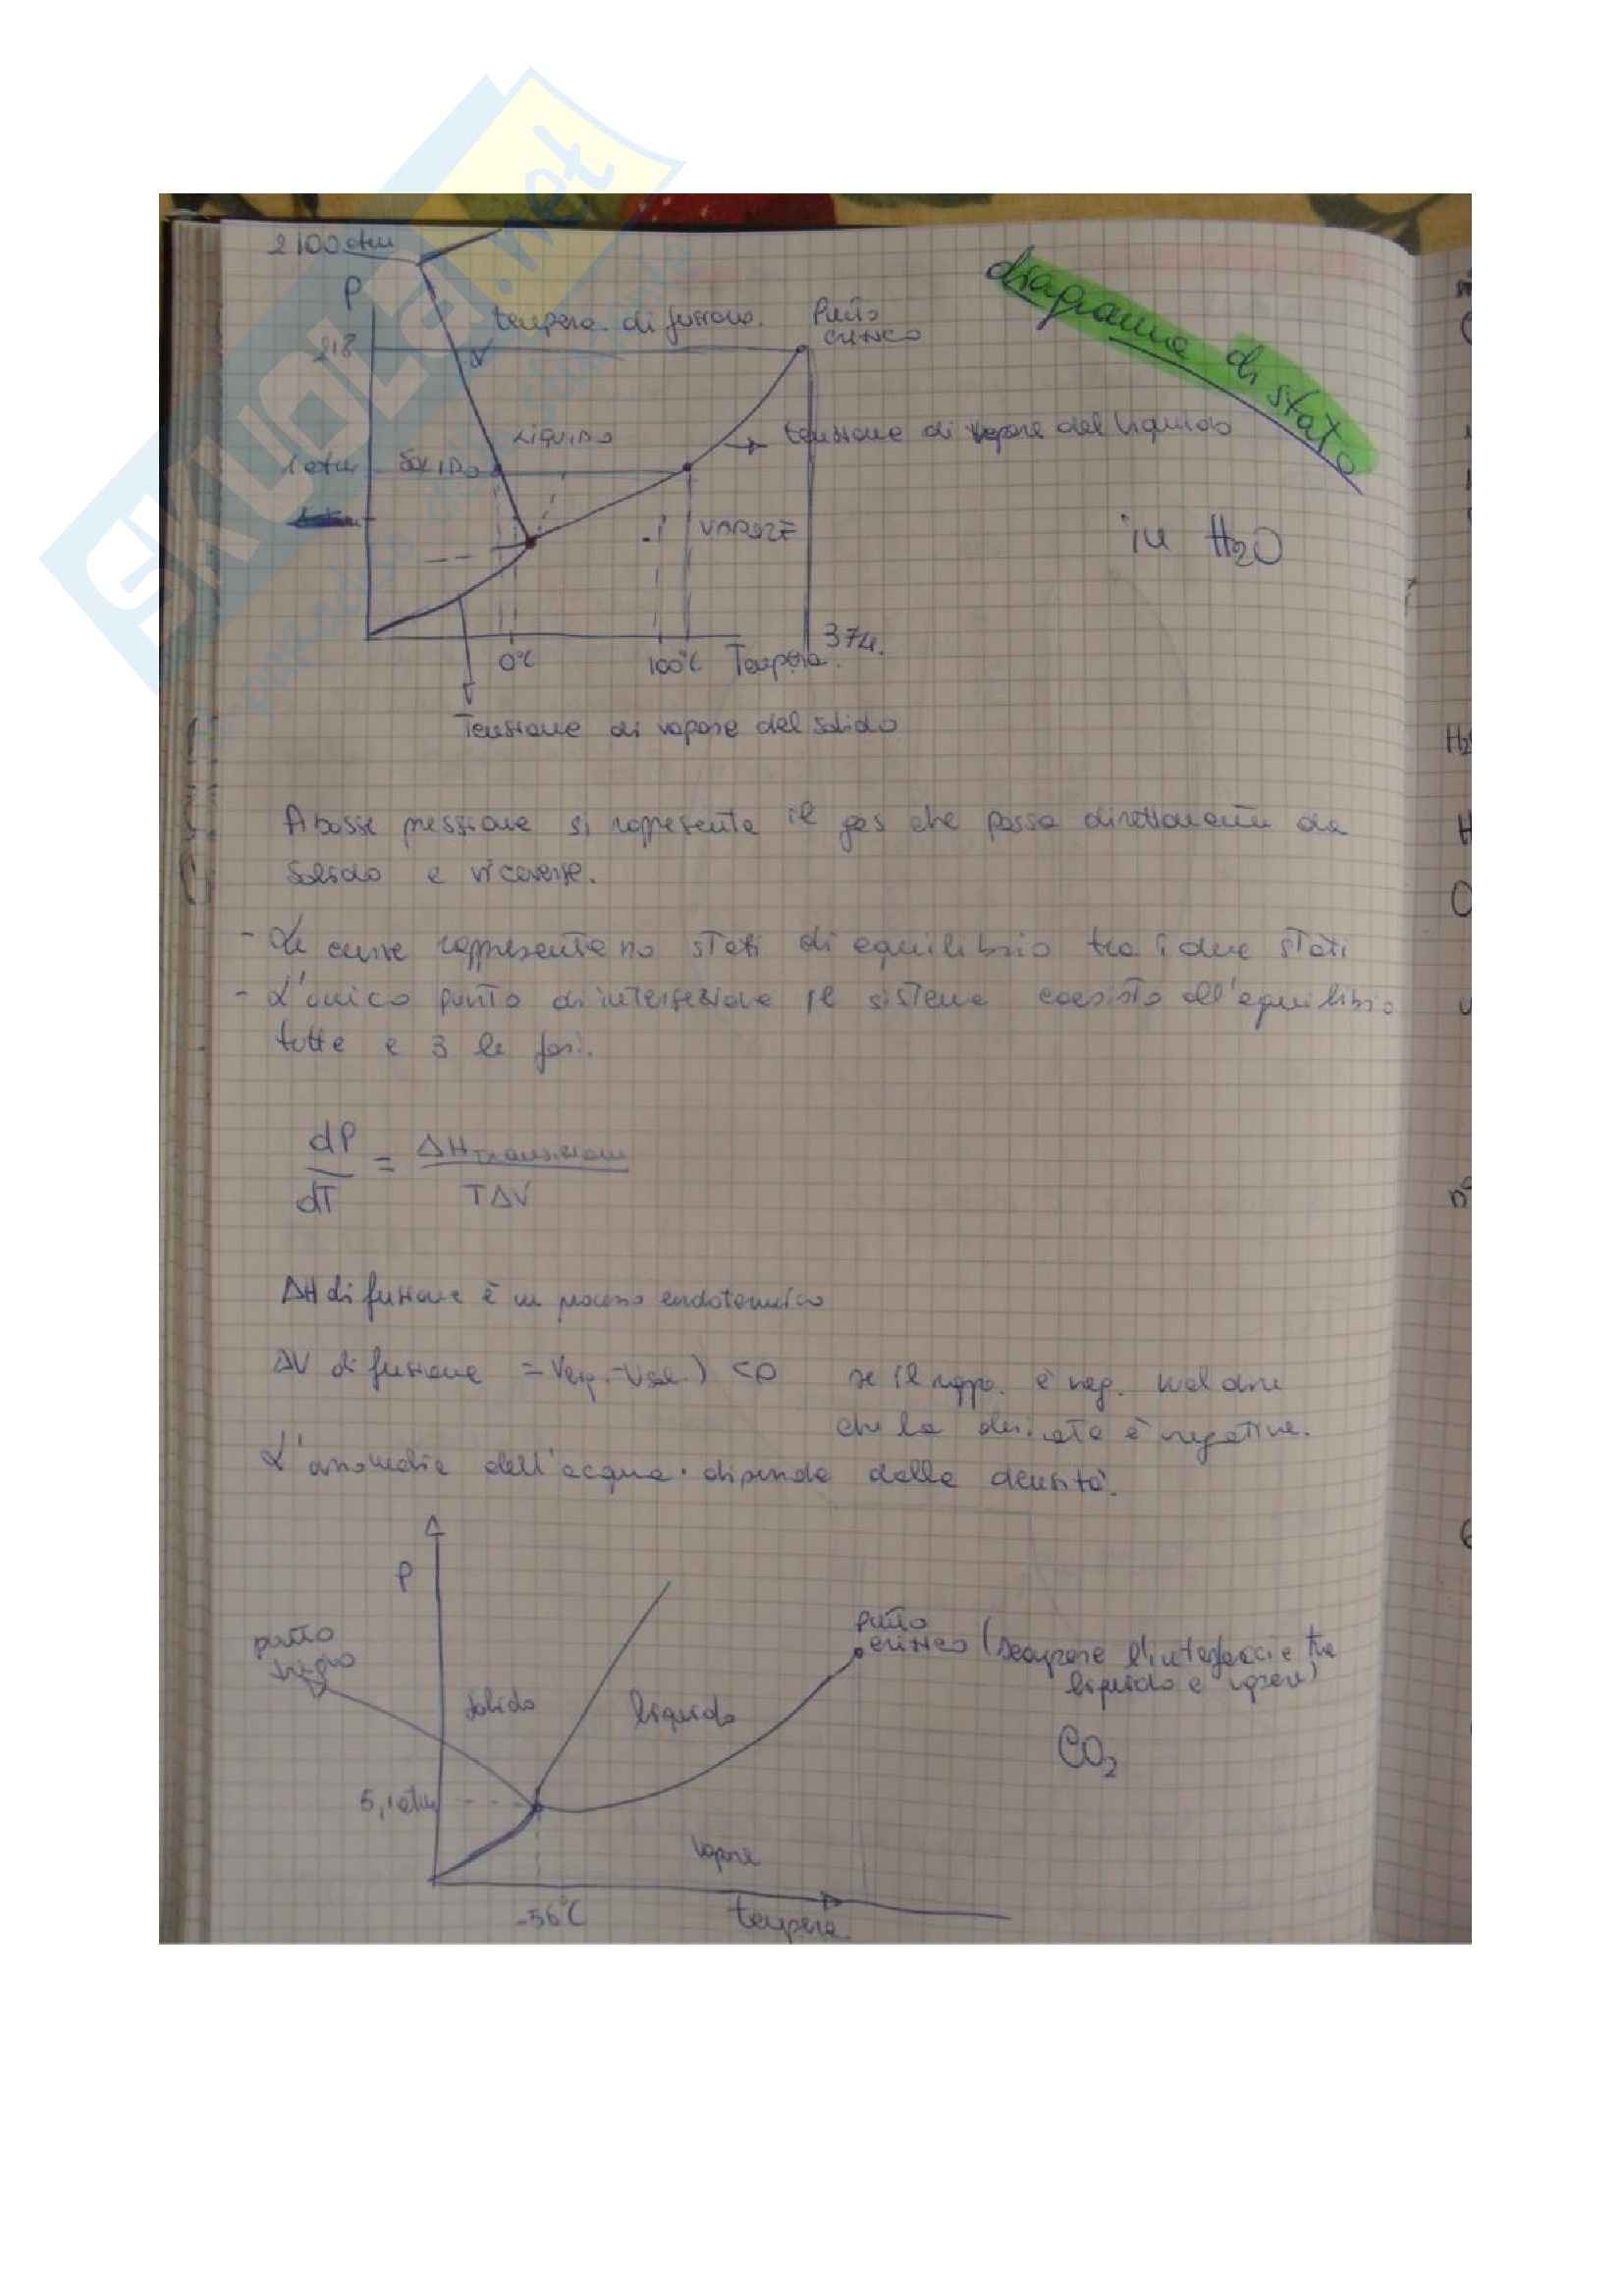 SKUOLA.net
2100 atm
P
diagramma di stato
tempera. di fusione.
Punto
critico
218
LIQUIDO
tensione di vapore del liquido
1 atm
SOLIDO
VAPORE
in H2O
0°C
100°C
Tempera.
374.
Tensione di vapore del solido
A basse pressione si rappresenta il gas che passa direttamente da
solido e viceversa.
- Le curve rappresentano stati di equilibrio tra i due stati
- L'unico punto di intersezione il sistema coesisto all'equilibrio
tutte e 3 le fasi.
dP/dT = ΔH transizione / TΔV
ΔH di fusione è un processo endotermico
ΔV di fusione = Vliq. - Vsol.) <0 se il rapp. è neg. vuol dire
che la derivata è negativa.
L'anomalia dell'acqua dipende dalla densità.
P
punto
triplo
Punto
critico (scompare l'interfaccia tra
liquido e vapore)
solido
liquido
CO2
5,1 atm
vapore
-56°C
tempera